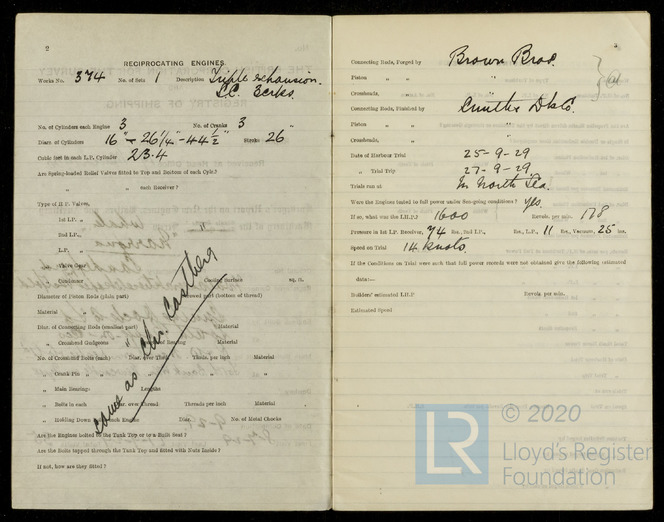 2
RECIPROCATING ENGINES.
Works No. 374 No. of Sets 1 Description Triple expansion.
No. of Cylinders each Engine 3 No. of Cranks 3
Diars. of Cylinders 16" - 26 1/4" - 44 1/2" Stroke 26"
Cubic feet in each L.P. Cylinder 23.4
Are Spring-loaded Relief Valves fitted to Top and Bottom of each Cylr.?
" " each Receiver?
Type of H.P. Valves,
1st I.P. "
2nd I.P. "
L.P. "
Condenser Cooling Surface sq. ft.
Diameter of Piston Rods (plain part) Screwed part (bottom of thread)
Material
Diar. of Connecting Rods (smallest part) Material
" Crosshead Gudgeons Bearing Material
No. of Crosshead Bolts (each) Diar. over Thrd. Thrds. per inch Material
" Crank Pin " " " "
" Main Bearings Lengths
" Bolts in each Diar. over Thread Threads per inch Material
" Holding Down each Engine Diar. No. of Metal Chocks
Are the Engines bolted to the Tank Top or to a Built Seat?
Are the Bolts tapped through the Tank Top and fitted with Nuts Inside?
If not, how are they fitted?
same as Chr.
3
Connecting Rods, Forged by Brown Bros.
Piston " "
Crossheads, "
Connecting Rods, Finished by
Piston " "
Crossheads, "
Date of Harbour Trial 25-9-29
" Trial Trip 27-9-29
Trials run at In North Sea.
Were the Engines tested to full power under Sea-going conditions? Yes.
If so, what was the I.H.P.? 1600 Revols. per min. 178
Pressure in 1st I.P. Receiver, 74 lbs., 2nd I.P., lbs., L.P., 11 lbs., Vacuum, 25 ins.
Speed on Trial 14 knots.
If the Conditions on Trial were such that full power records were not obtained give the following estimated
data:—
Builders' estimated I.H.P. Revols. per min.
Estimated Speed
LR © 2020
Lloyd's Register
Foundation